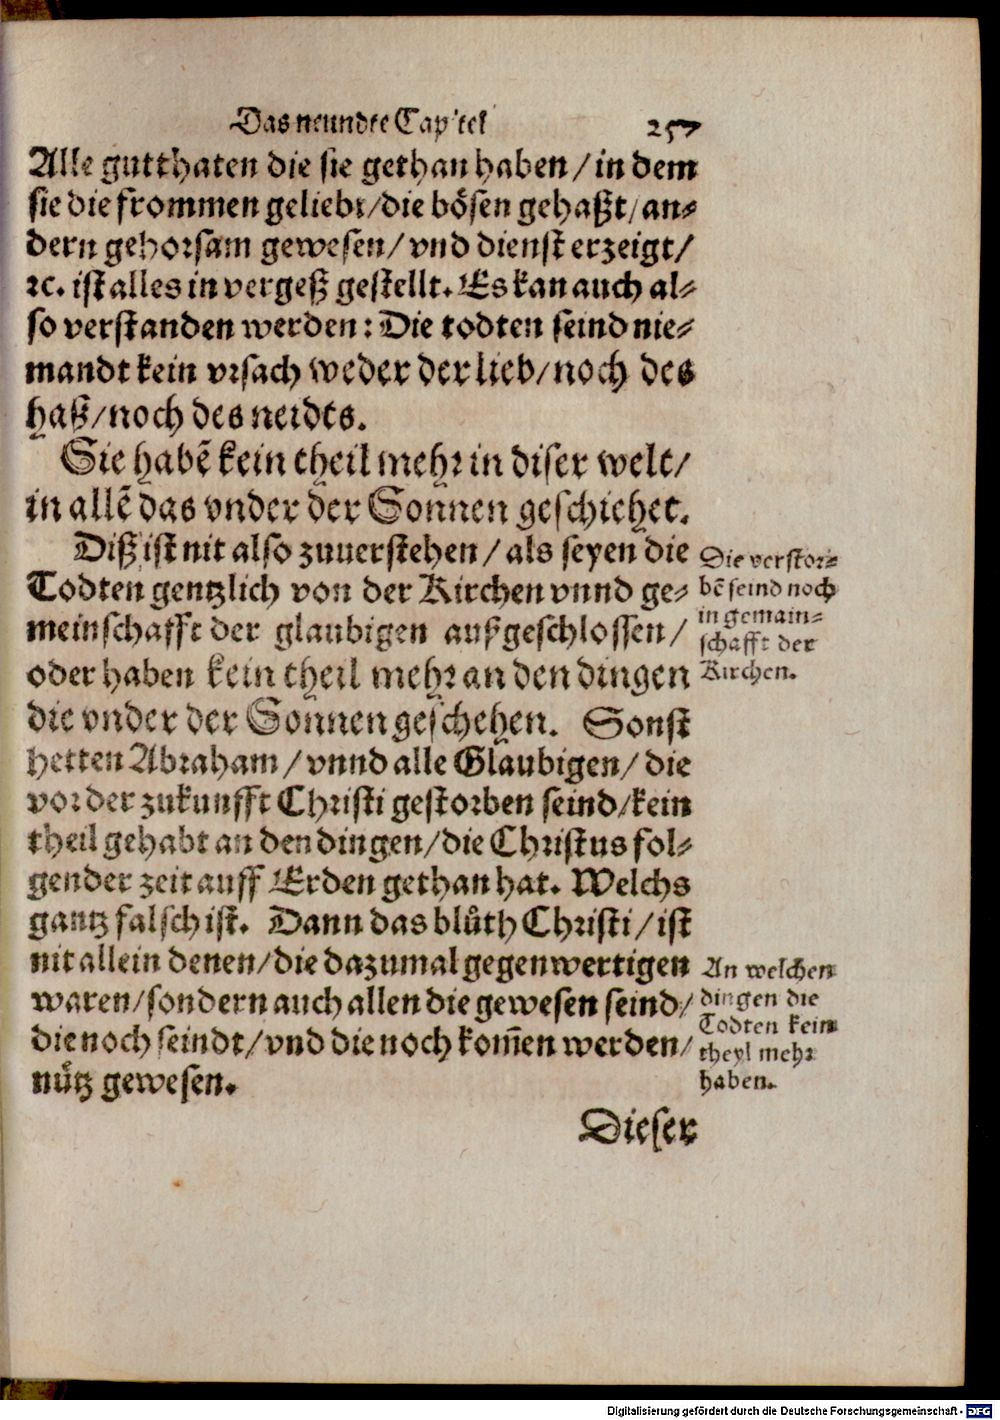 Das neundte Capitel 257
Alle gutthaten die sie gethan haben / in dem
sie die frommen geliebt / die bösen gehaßt / an⸗
dern gehorsam gewesen / vnd dienst erzeigt /
ꝛc. ist alles in vergeß gestellt. Es kan auch al⸗
so verstanden werden: Die todten seind nie⸗
mandt kein vrsach weder der lieb / noch des
haß / noch des neidts.
Sie habẽ kein theil mehr in diser welt /
in allẽ das vnder der Sonnen geschiehet.
Diß ist nit also zuuerstehen / als seyen die
Todten gentzlich von der Kirchen vnnd ge⸗
meinschafft der glaubigen außgeschlossen /
oder haben kein theil mehr an den dingen
die vnder der Sonnen geschehen. Sonst
hetten Abraham / vnnd alle Glaubigen / die
vor der zukunfft Christi gestorben seind / kein
theil gehabt an den dingen / die Christus fol⸗
gender zeit auff Erden gethan hat. Welchs
gantz falsch ist. Dann das blůth Christi / ist
nit allein denen / die dazumal gegenwertigen
waren / sondern auch allen die gewesen seind /
die noch seindt / vnd die noch kom̃en werden /
nůtz gewesen.
Dieser
Die verstor⸗
bẽ seind noch
in gemain⸗
schafft der
Kirchen.
An welchen
dingen die
Todten kein
theyl mehr
haben.
Digitalisierung gefördert durch die Deutsche Forschungsgemeinschaft - DFG